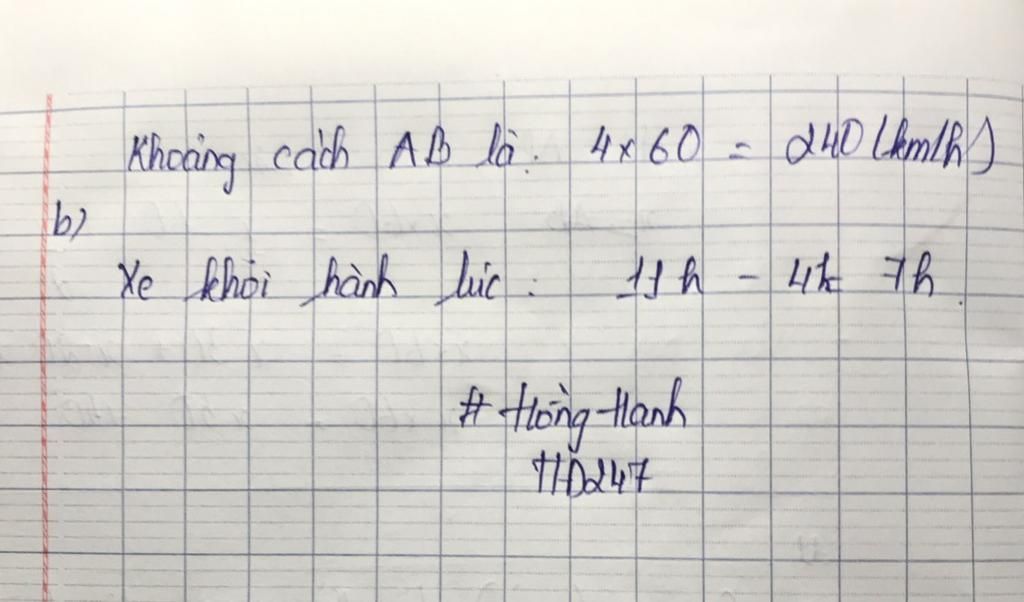 Khoảng cách AB là: 4x60 = 240 (km/h)
b)
Xe khởi hành lúc: 11h - 4h 7h.
# Hồng Hanh
THD247